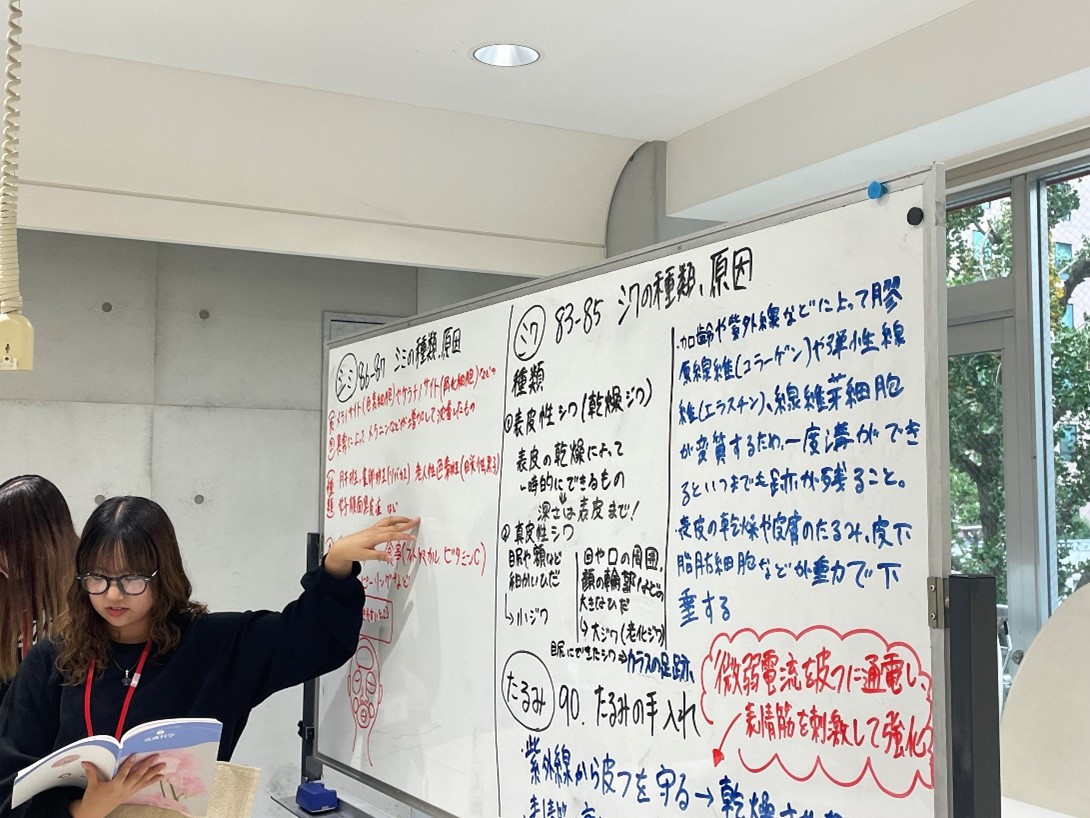 シミ 86-87 シミの種類、原因
メラノサイト(色素細胞)やケラチノサイト(角化細胞)などの
異常によってメラニンなどが増加して沈着したもの
老人性色素斑
など
ビタミンC)
ピーリングなど
シワ 83-85 シワの種類、原因
種類
①表皮性シワ(乾燥ジワ)
表皮の乾燥によって
一時的にできるもの
深さは表皮まで!
②真皮性シワ
目尻や頬など
細かいひだ
↳小ジワ
目や口の周囲、
顔の輪郭などの
大きなひだ
↳大ジワ(老化ジワ)
目尻にできたシワ⇒カラスの足跡
・加齢や紫外線などによって膠
原線維(コラーゲン)や弾性線
維(エラスチン)、線維芽細胞
が変質するため、一度溝ができ
るといつまでも跡が残ること。
・表皮の乾燥や皮膚のたるみ、皮下
脂肪細胞などが重力で下
垂する
たるみ 90. たるみの手入れ
・紫外線から皮フを守る→乾燥させ
微弱電流を皮フに通電し、
表情筋を刺激して強化
皮膚科学